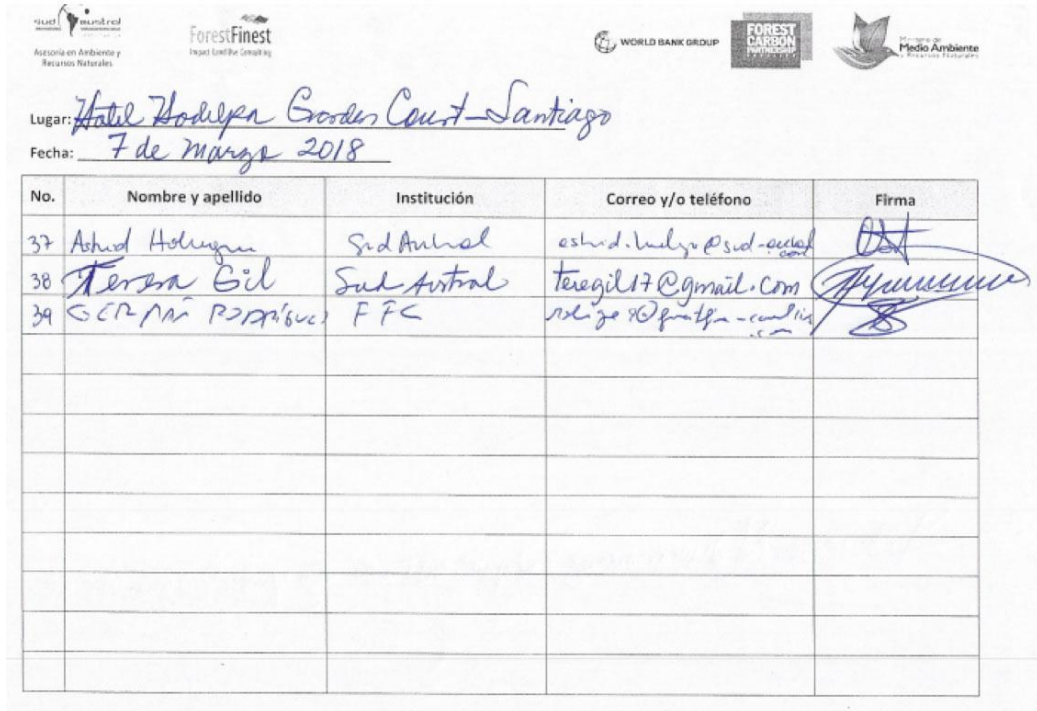 sud austral
Asesoría en Ambiente y
Recursos Naturales
ForestFinest
WORLD BANK GROUP
FOREST
CARBON
PARTNERSHIP
Medio Ambiente
y Recursos Naturales
Lugar: Hotel Hodelpa Garden Court - Santiago
Fecha: 7 de Marzo 2018
No. Nombre y apellido Institución Correo y/o teléfono Firma
37 Astrid Holguin Sud Austral
38 Teresa Gil Sud Austral teregil17@gmail.com
39 GERMÁN RODRÍGUEZ FFC